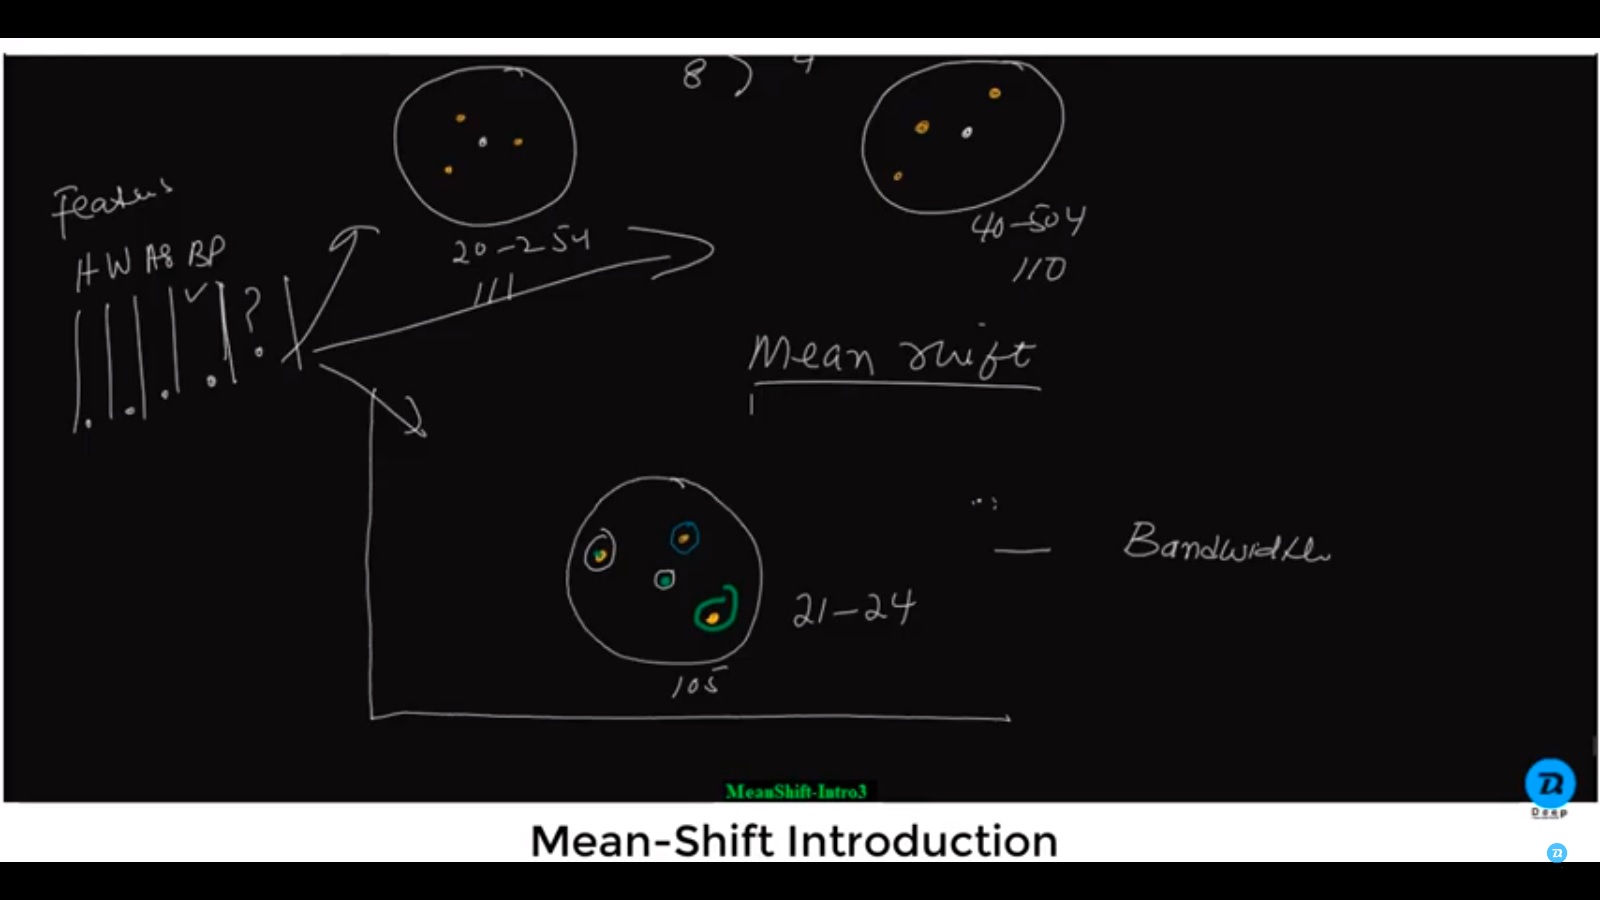 8 ) 4
Features
H W Ag BP
?
20-25 y
111
40-50 y
110
Mean shift
Bandwidth
21-24
105
MeanShift-Intro3
Deep
Mean-Shift Introduction